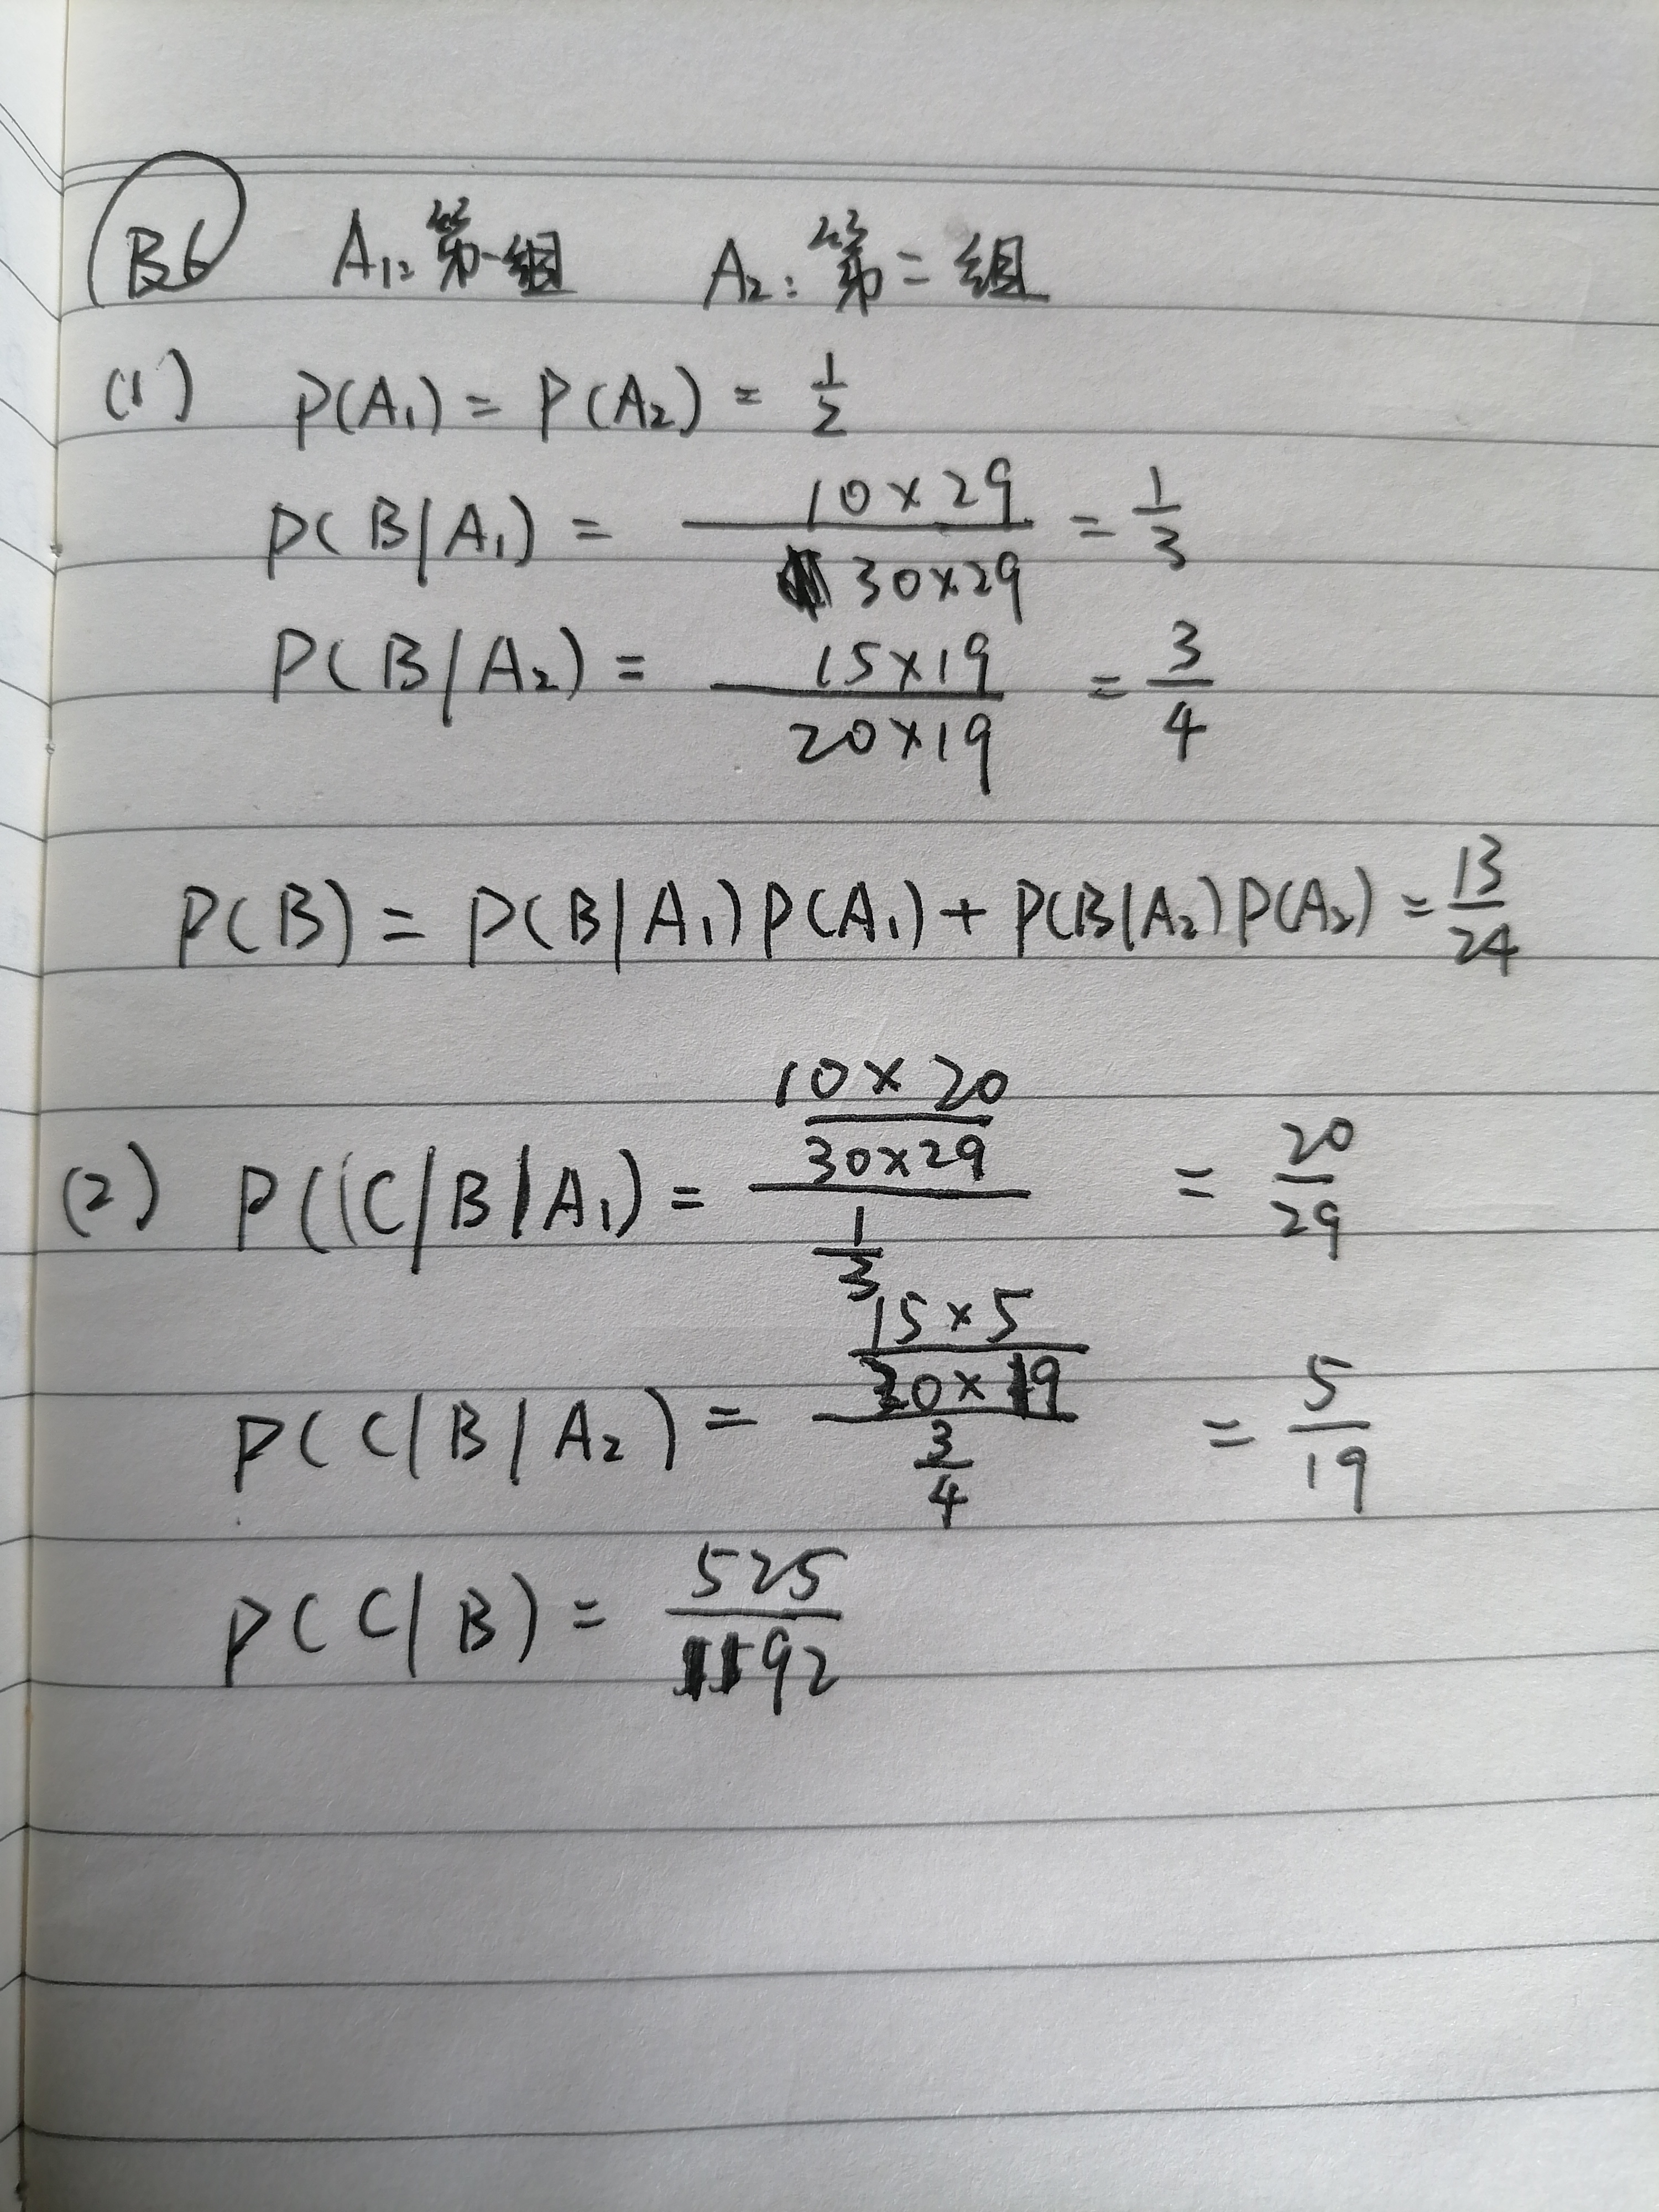 B6 A₁: 第一组 A₂: 第二组
(1) P(A₁) = P(A₂) = 1/2
P(B|A₁) = (10×29)/(30×29) = 1/3
P(B|A₂) = (15×19)/(20×19) = 3/4
P(B) = P(B|A₁)P(A₁) + P(B|A₂)P(A₂) = 13/24
(2) P((C|B|A₁) = ((10×20)/(30×29))/(1/3) = 20/29
P(C|B|A₂) = ((15×5)/(20×19))/(3/4) = 5/19
P(C|B) = 525/1192